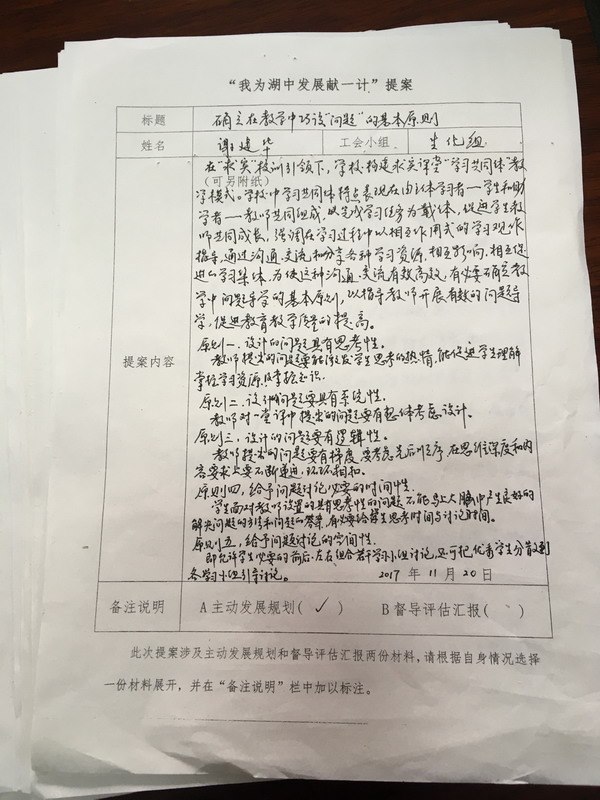 “我为湖中发展献一计”提案
标题 确立在教学中巧设“问题”的基本原则
姓名 谢建华 工会小组 生化组
在“求实”校训引领下，学校构建求实课堂“学习共同体”教
(可另附纸)
学模式。学校中学习共同体特点表现在由主体学习者—学生和助
学者—教师共同组成，以完成学习任务为载体，促进学生教
师共同成长，强调在学习过程中以相互作用式的学习观作
指导，通过沟通、交流和分享各种学习资源，相互影响，相互促
进的学习集体。为使这种沟通、交流有效高效，有必要确定教
学中问题导学的基本原则，以指导教师开展有效的问题导
学，促进教育教学质量的提高。
提案内容
原则一、设计的问题具有思考性。
教师提出的问题要能激发学生思考的热情，能促进学生理解
掌控学习资源及掌握知识。
原则二、设计的问题要具有系统性。
教师对一堂课中提出的问题要有整体考虑设计。
原则三、设计的问题要有逻辑性。
教师提出的问题要有梯度，要考虑先后顺序，在思维深度和内
容要求上要不断递进，环环相扣。
原则四、给予问题讨论必要的时间性。
学生面对教师设置的具有思考性的问题不能马上大脑中产生良好的
解决问题的方法和问题的答案，有必要给学生思考时间与讨论时间。
原则五、给予问题讨论的空间性。
即允许学生必要的前后、左右组合若干学习小组讨论，还可把优秀学生分散到
各学习小组引导讨论。 2017 年 11 月 20 日
备注说明 A 主动发展规划( ✓ ) B 督导评估汇报( )
此次提案涉及主动发展规划和督导评估汇报两份材料，请根据自身情况选择
一份材料展开，并在“备注说明”栏中加以标注。